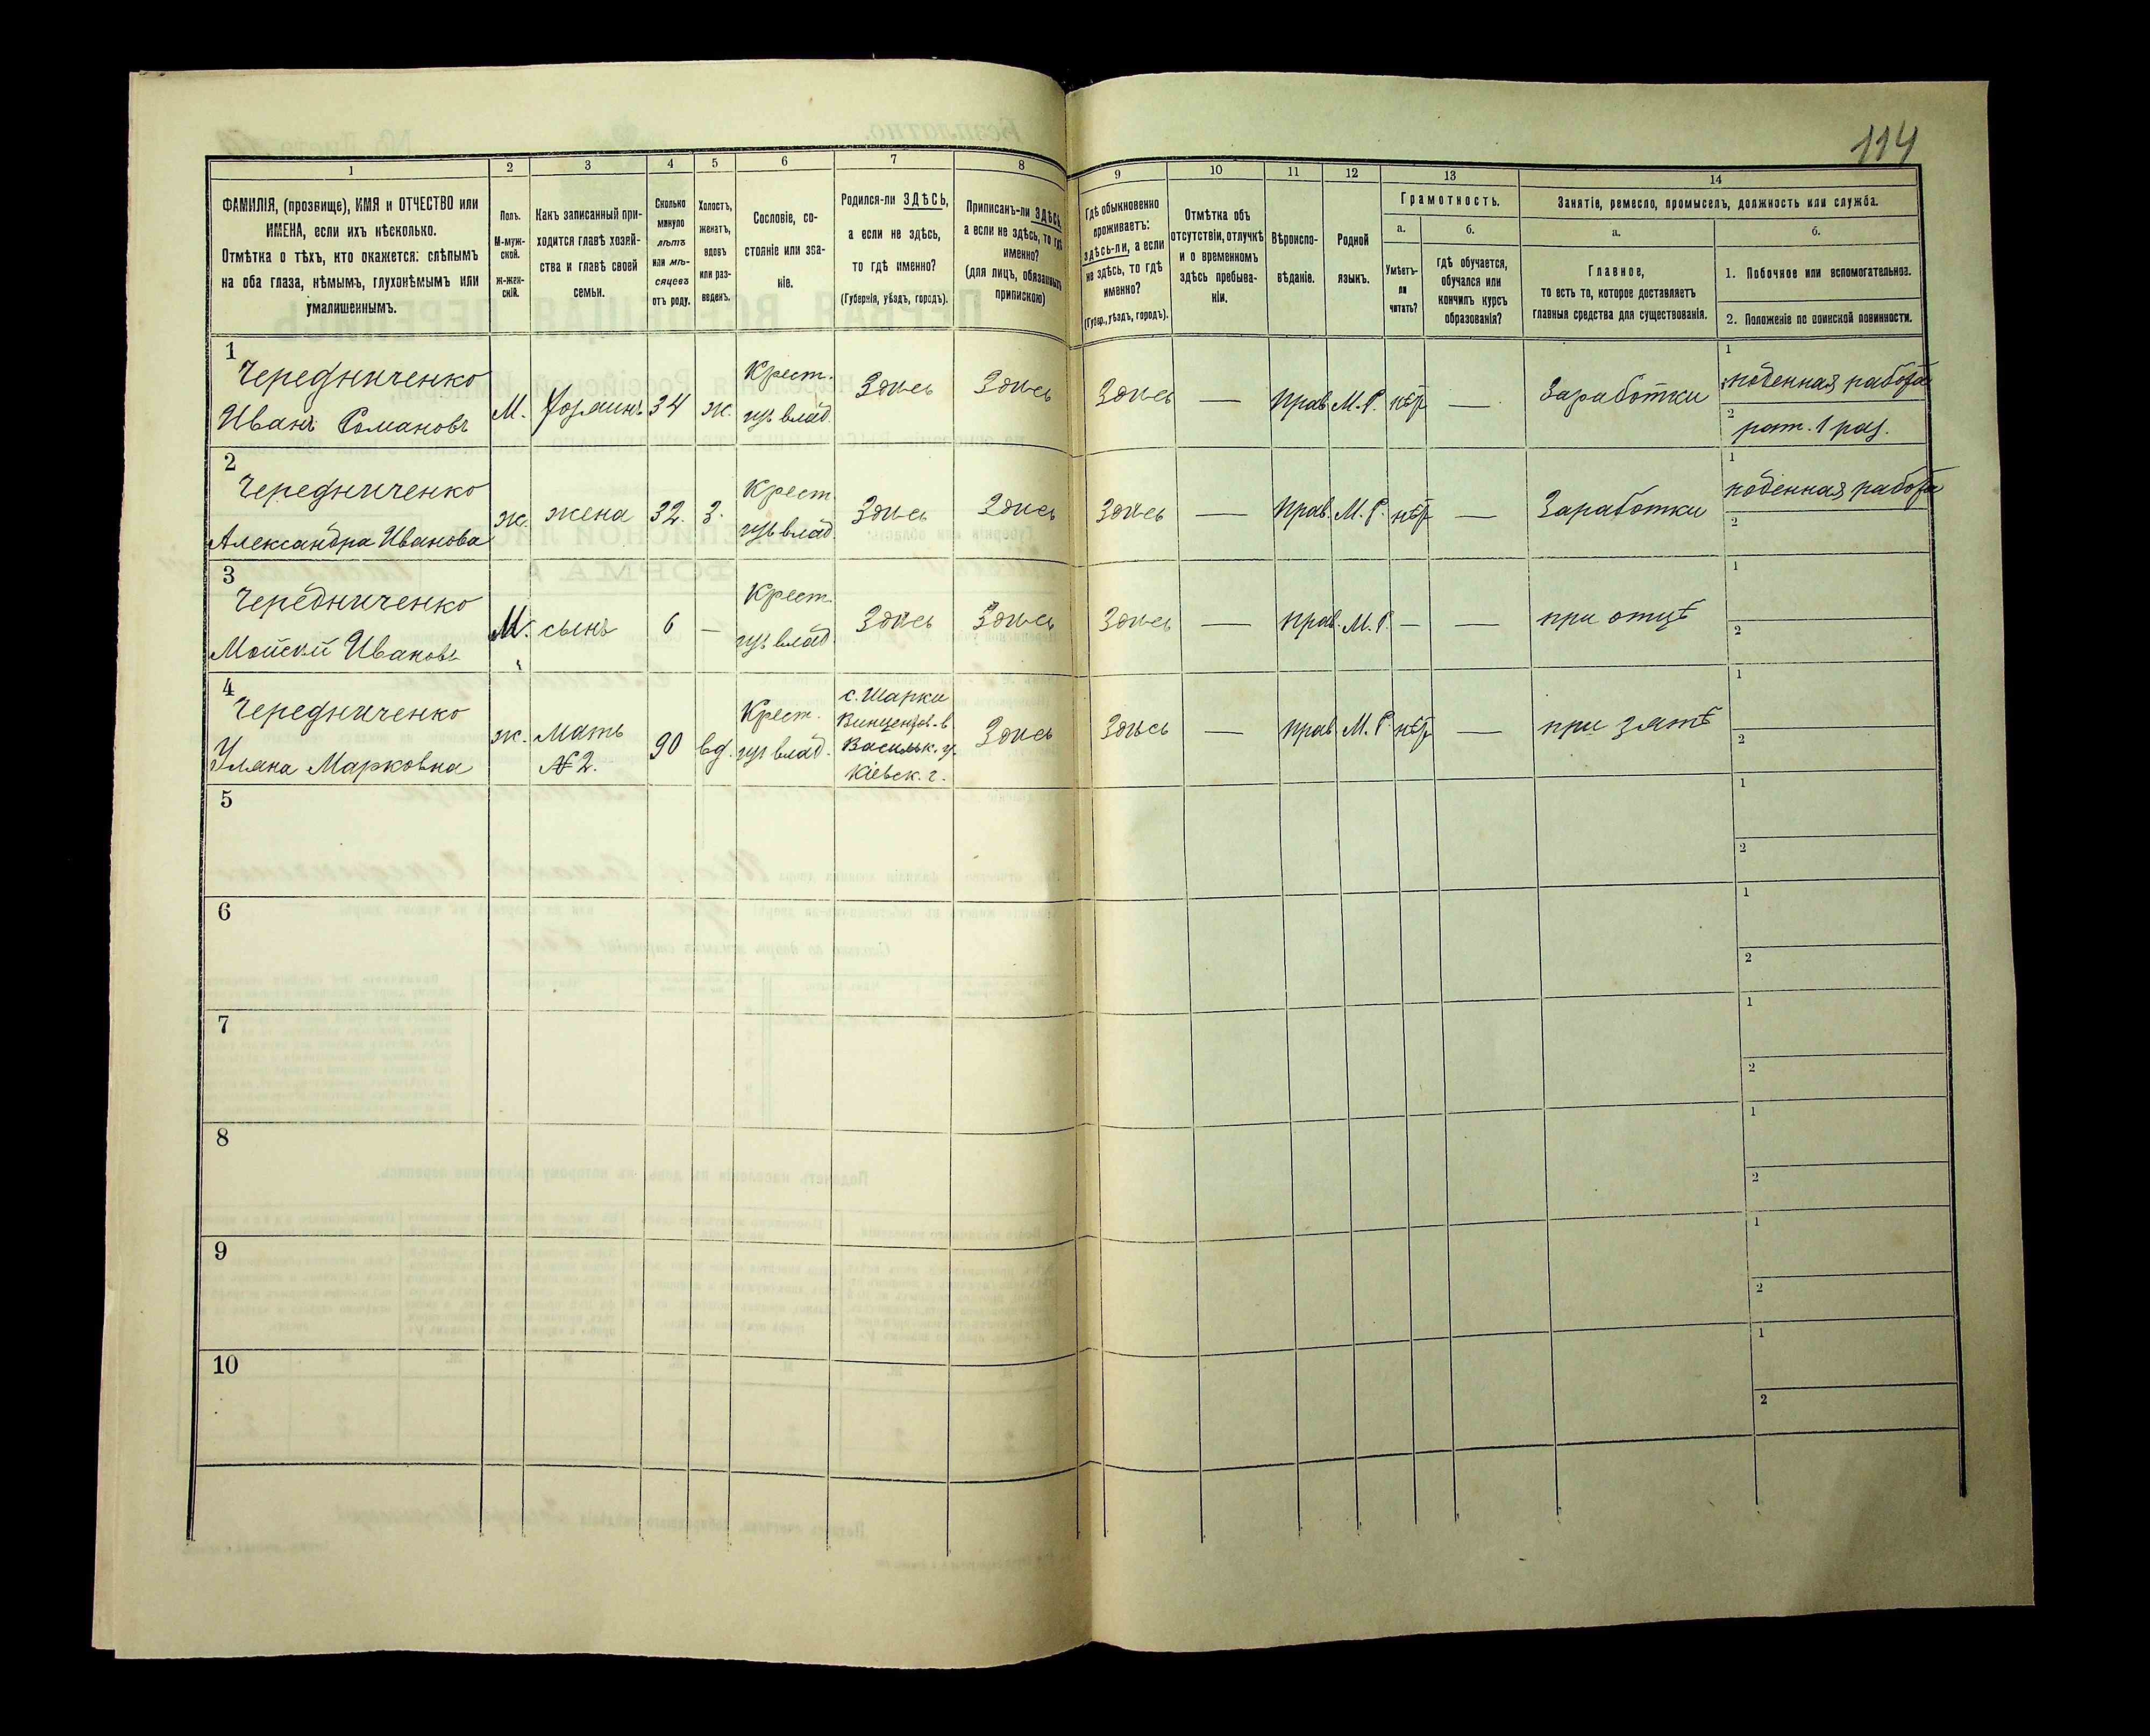 114
1 2 3 4 5 6 7 8 9 10 11 12 13 14
ФАМИЛІЯ, (прозвище), ИМЯ и ОТЧЕСТВО или
ИМЕНА, если ихъ нѣсколько.
Отмѣтка о тѣхъ, кто окажется: слѣпымъ
на оба глаза, нѣмымъ, глухонѣмымъ или
умалишеннымъ.
Полъ.
М-муж-
ской.
ж-жен-
скій.
Какъ записанный при-
ходится главѣ хозяй-
ства и главѣ своей
семьи.
Сколько
минуло
лѣтъ
или мѣ-
сяцевъ
отъ роду.
Холостъ,
женатъ,
вдовъ
или раз-
веденъ.
Сословіе, со-
стояніе или зва-
ніе.
Родился-ли ЗДѢСЬ,
а если не здѣсь,
то гдѣ именно?
(Губернія, уѣздъ, городъ).
Приписанъ-ли ЗДѢСЬ,
а если не здѣсь, то гдѣ
именно?
(для лицъ, обязанныхъ
припискою)
Гдѣ обыкновенно
проживаетъ:
здѣсь-ли, а если
не здѣсь, то гдѣ
именно?
(Губер., уѣздъ, городъ).
Отмѣтка объ
отсутствіи, отлучкѣ
и о временномъ
здѣсь пребыва-
ніи.
Вѣроиспо-
вѣданіе.
Родной
языкъ.
Грамотность.
а.
Умѣетъ-
ли
читать?
б.
гдѣ обучается,
обучался или
кончилъ курсъ
образованія?
Занятіе, ремесло, промыселъ, должность или служба.
а.
Главное,
то есть то, которое доставляетъ
главныя средства для существованія.
б.
1. Побочное или вспомогательное.
2. Положеніе по воинской повинности.
1
Чередниченко
Иванъ Романовъ
М. хозяинъ 34 ж.
Крест.
изъ влад.
Здѣсь Здѣсь Здѣсь — прав. М.Р. нѣтъ — Заработки
1 поденная работа
2 рат. 1 раз.
2
Чередниченко
Александра Иванова
ж. жена 32. З.
Крест.
изъ влад.
Здѣсь Здѣсь Здѣсь — прав. М.Р. нѣтъ — Заработки
1 поденная работа
2
3
Чередниченко
Мойсей Ивановъ
М. сынъ 6 —
Крест.
изъ влад.
Здѣсь Здѣсь Здѣсь — прав. М.Р. — — при отцѣ
1
2
4
Чередниченко
Уляна Марковна
ж. мать
№ 2.
90 вд.
Крест.
изъ влад.
с. Шарки
Васильк. у.
Кіевск. г.
Здѣсь Здѣсь — прав. М.Р. нѣтъ — при зятѣ
1
2
5
1
2
6
1
2
7
1
2
8
1
2
9
1
2
10
1
2